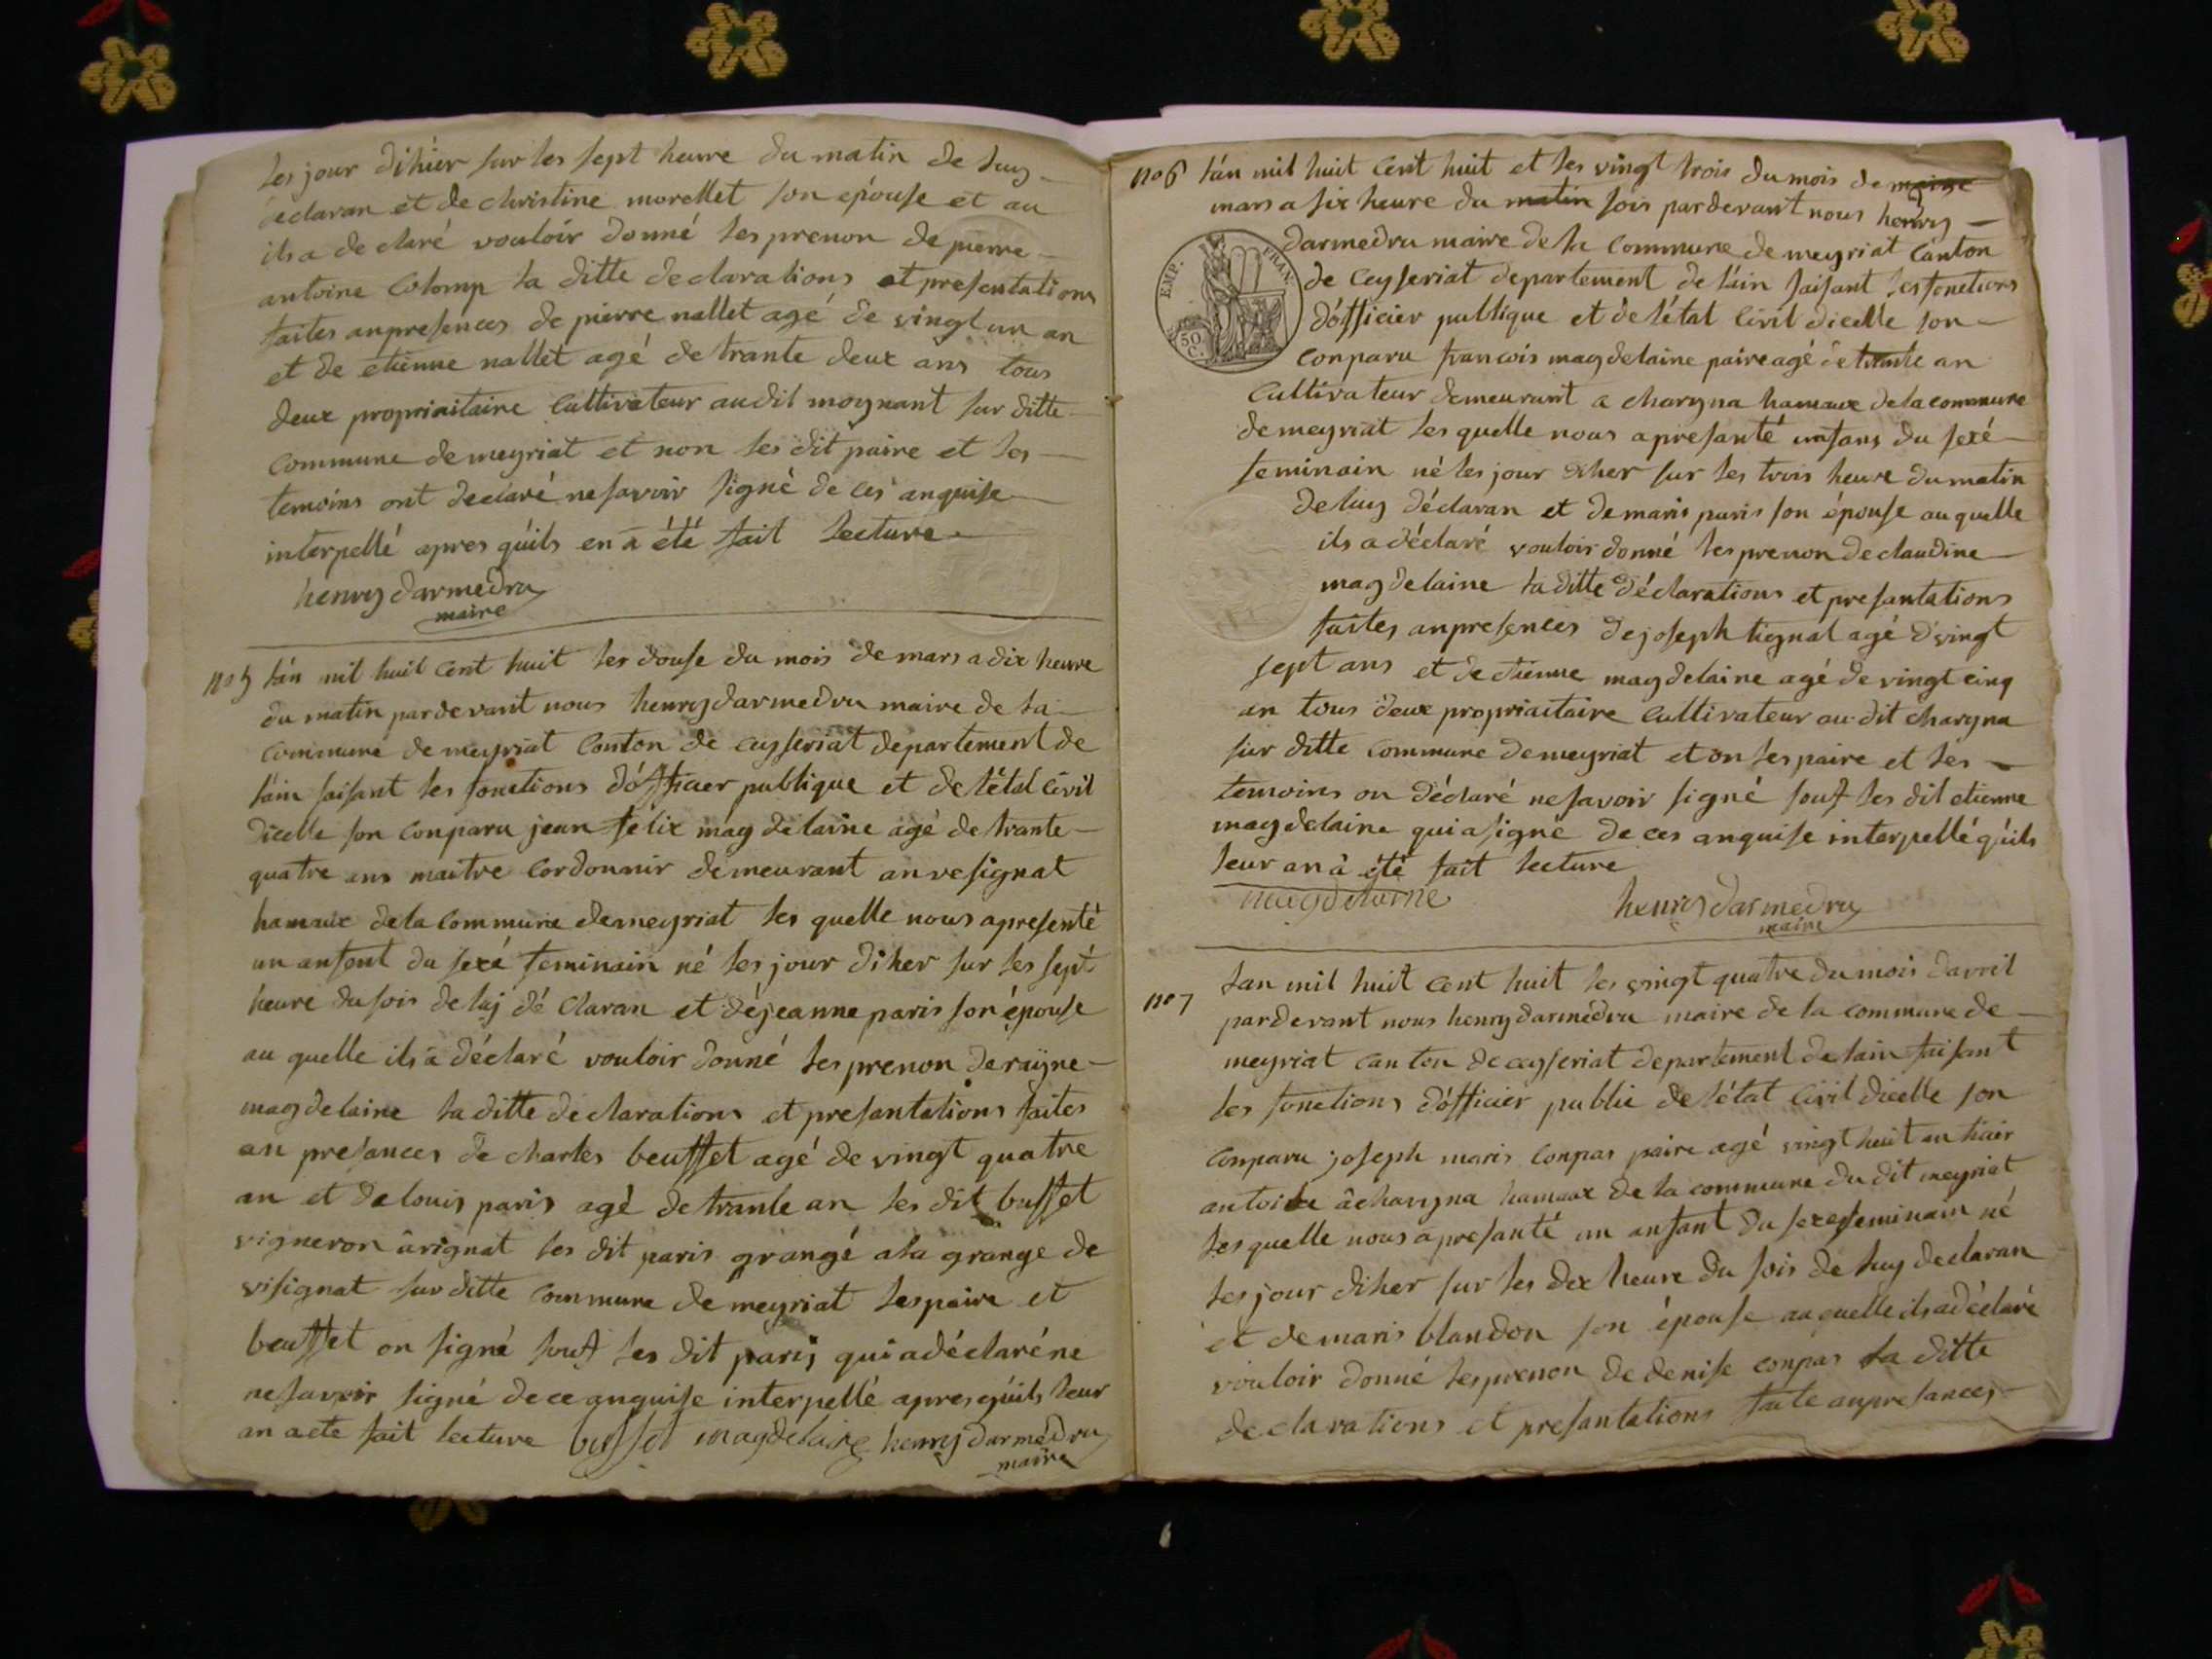 les jour dihier sur les sept heure du matin de luy
déclaran et de christine morellet son epouse et au
ils a de claré vouloir donné les prenon de pierre
antoine Colomp la ditte declarations et presentations
faites anpresences de pierre nallet agé de vingt un an
et de etienne nallet agé de trante deux ans tous
deux propriaitaire Cultivateur audit moynant sur ditte
Commune de meyriat et non les dit paire et les
temoins ont declaré ne savoir signé de ces anquise
interpellé apres quils en a été fait lecture
henry darmedru
maire
no 5 lán mil huit Cent huit les douse du mois de mars a dix heure
du matin pardevant nous henry darmedru maire de la
Commune de meyriat Conton de ceyseriat departement de
láin faisant les fonctions dófficier publique et de létal Civil
dicelle son Conparu jean felix magdelaine agé de trante
quatre ans maitre Cordonnir demeurant anvesignat
hamaux de la Commune de meyriat les quelle nous apresenté
un anfont du sexé feminain né les jour diher sur les sept
heure du sois de luj dé Claran et déjeanne paris son épouse
au quelle ils a déclaré vouloir donné les prenon de raijne
magdelaine la ditte declarations et presantations faites
an presances de charles beuffet agé de vingt quatre
an et de louis paris agé de trante an les dit buffet
vigneron àrignat les dit paris grangé a la grange de
visignat sur ditte Commune de meyriat les paire et
beuffet on signé souf les dit paris qui adéclaré ne
ne savoir signé de ce anquise interpellé apres qúils leur
an aete fait lecture buffet magdelaine henry darmedru
maire
no 6 lán mil huit Cent huit et les vingt trois du mois de
mars a six heure du matin sois pardevant nous henry
darmedru maire de la Commune de meyriat Canton
de Ceyseriat departement de láin faisant les fonctions
dófficier publique et de létat Civil dicelle son
EMP. FRAN.
50 C.
Conparu francois magdelaine paire agé de trante an
Cultivateur demeurant a charyna hamaux de la commune
de meyriat les quelle nous apresanté unfans du sexé
feminain né les jour diher sur les trois heure du matin
de luy déclaran et de maris paris son épouse au quelle
ils a déclaré vouloir donné les prenon de claudine
magdelaine la ditte déclarations et presantations
faites anpresences de joseph tignat agé dvingt
sept ans et de etienne magdelaine agé de vingt cinq
an tous deux propriaitaire Cultivateur au dit charyna
sur ditte Commune de meyriat et on les paire et lés
temoins on déclaré ne savoir signé souf les dit etienne
magdelaine qui a signé de ces anquise interpellé qúils
leur an à été fait lecture
magdelaine henry darmedru
maire
no 7 lan mil huit Cent huit les vingt quatre du mois davril
pardevant nous henry darmédru maire de la commune de
meyriat can ton de ceyseriat departement de lain faisant
les fonctions dófficier public de létat Civil dicelle son
Conparu joseph maris Conpas paire agé vingt huit an
àcharyna hamaux de la commune du dit meyriat
les quelle nous apresanté un anfant du sexe feminain né
les jour diher sur les dix heure du sois de luy declaran
et de maris blandon son épouse au quelle ils adéclaré
vouloir donné les prenon de denise conpas la ditte
declarations et presantations faite anpresances